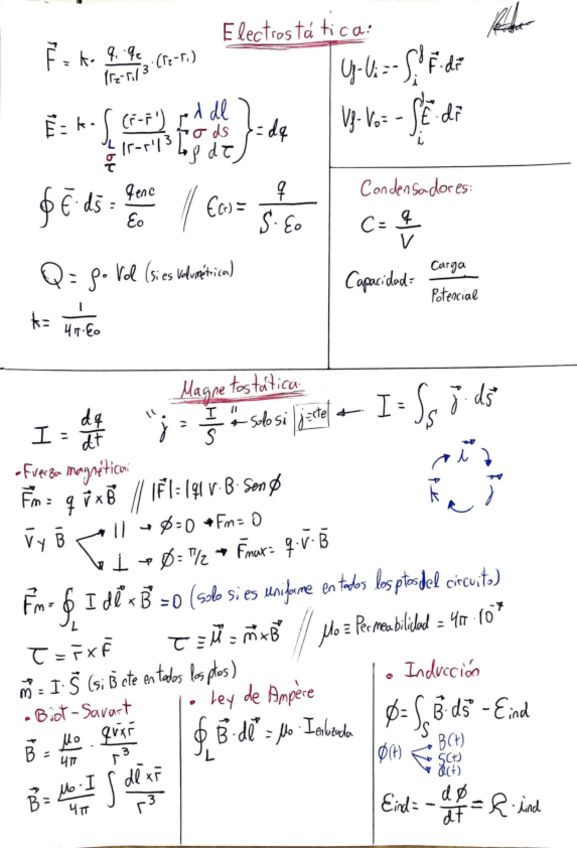 Electrostática:
F⃗ = k · q₁·q₂ / |r₂-r₁|³ · (r₂-r₁)
E⃗ = k · ∫ (r̄-r̄') / |r-r'|³ [λ dl, σ ds, ρ dτ] = dq
L
σ
τ
∮ Ē · ds̄ = qenc / ε₀ // E(r) = q / S·ε₀
Q = ρ · Vol (si es volumétrica)
k = 1 / 4π·ε₀
Uf - Ui = - ∫ᵢᶠ F⃗ · dr̄
Vf - V₀ = - ∫ᵢᶠ E⃗ · dr̄
Condensadores:
C = q / V
Capacidad = Carga / Potencial
Magnetostática
I = dq / dt "j = I / S" ← solo si j=cte ← I = ∫S j⃗ · ds⃗
i⃗
j⃗
k⃗
• Fuerza magnética:
F⃗m = q v⃗ x B⃗ // |F⃗| = |q| v · B · Sen ϕ
v̄ y B̄ → || → ϕ = 0 → Fm = 0
→ ⊥ → ϕ = π/2 → F̄max = q · v̄ · B̄
F⃗m = ∮L I dl⃗ x B⃗ = 0 (solo si es uniforme en todos los ptos del circuito)
τ = r̄ x F̄ τ ≡ M⃗ = m⃗ x B⃗ // μ₀ ≡ Permeabilidad = 4π · 10⁻⁷
m⃗ = I · S⃗ (si B̄ cte en todos los ptos)
• Biot-Savart
B⃗ = μ₀ / 4π · q v̄ x r̄ / r³
B⃗ = μ₀ · I / 4π ∫ dl̄ x r̄ / r³
• Ley de Ampère
∮L B⃗ · dl⃗ = μ₀ · Ienlazada
• Inducción
ϕ = ∫S B⃗ · ds⃗ - Eind
ϕ(t) ← B(t)
← S(t)
← α(t)
Eind = - dϕ / dt = R · ind